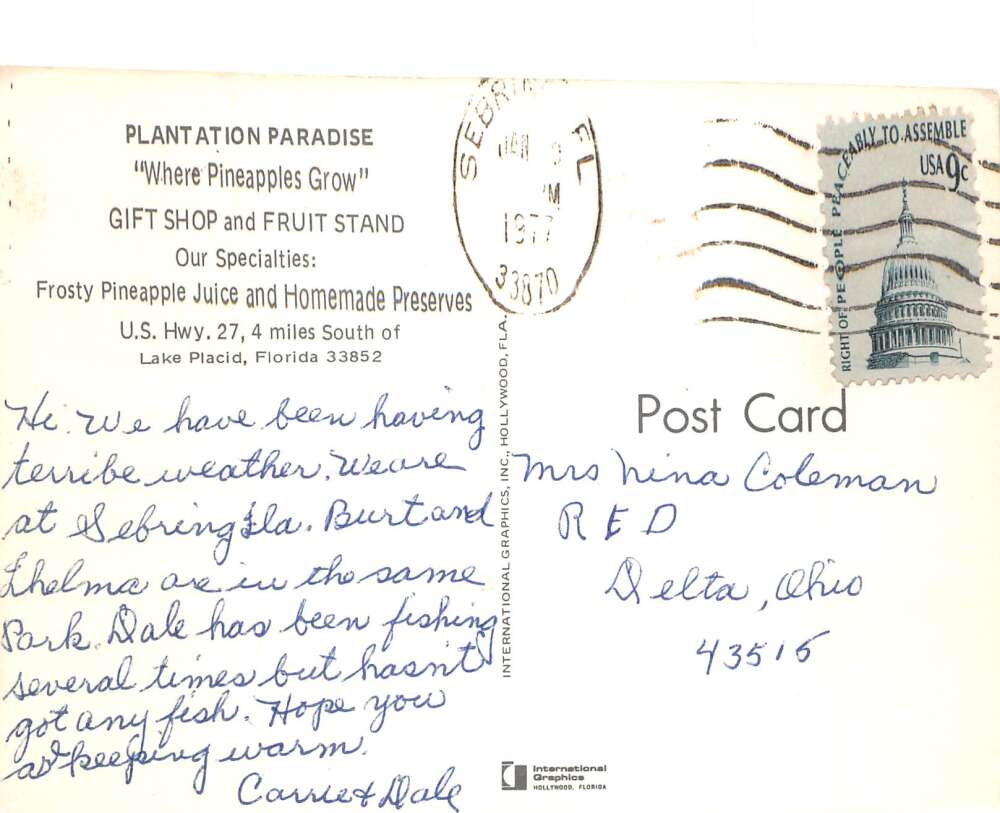 PLANTATION PARADISE
"Where Pineapples Grow"
GIFT SHOP and FRUIT STAND
Our Specialties:
Frosty Pineapple Juice and Homemade Preserves
U.S. Hwy. 27, 4 miles South of
Lake Placid, Florida 33852
Hi. We have been having
terribe weather. We are
at Sebring Fla. Burt and
Thelma are in the same
Park. Dale has been fishing
several times but hasn't
got any fish. Hope you
keeping warm.
Carrie & Dale
INTERNATIONAL GRAPHICS, INC., HOLLYWOOD, FLA.
SEBRING FL
JAN
M
1977
33870
RIGHT OF PEOPLE PEACEABLY TO ASSEMBLE
USA 9c
Post Card
Mrs Nina Coleman
R F D
Delta, Ohio
43515
International
Graphics
HOLLYWOOD, FLORIDA